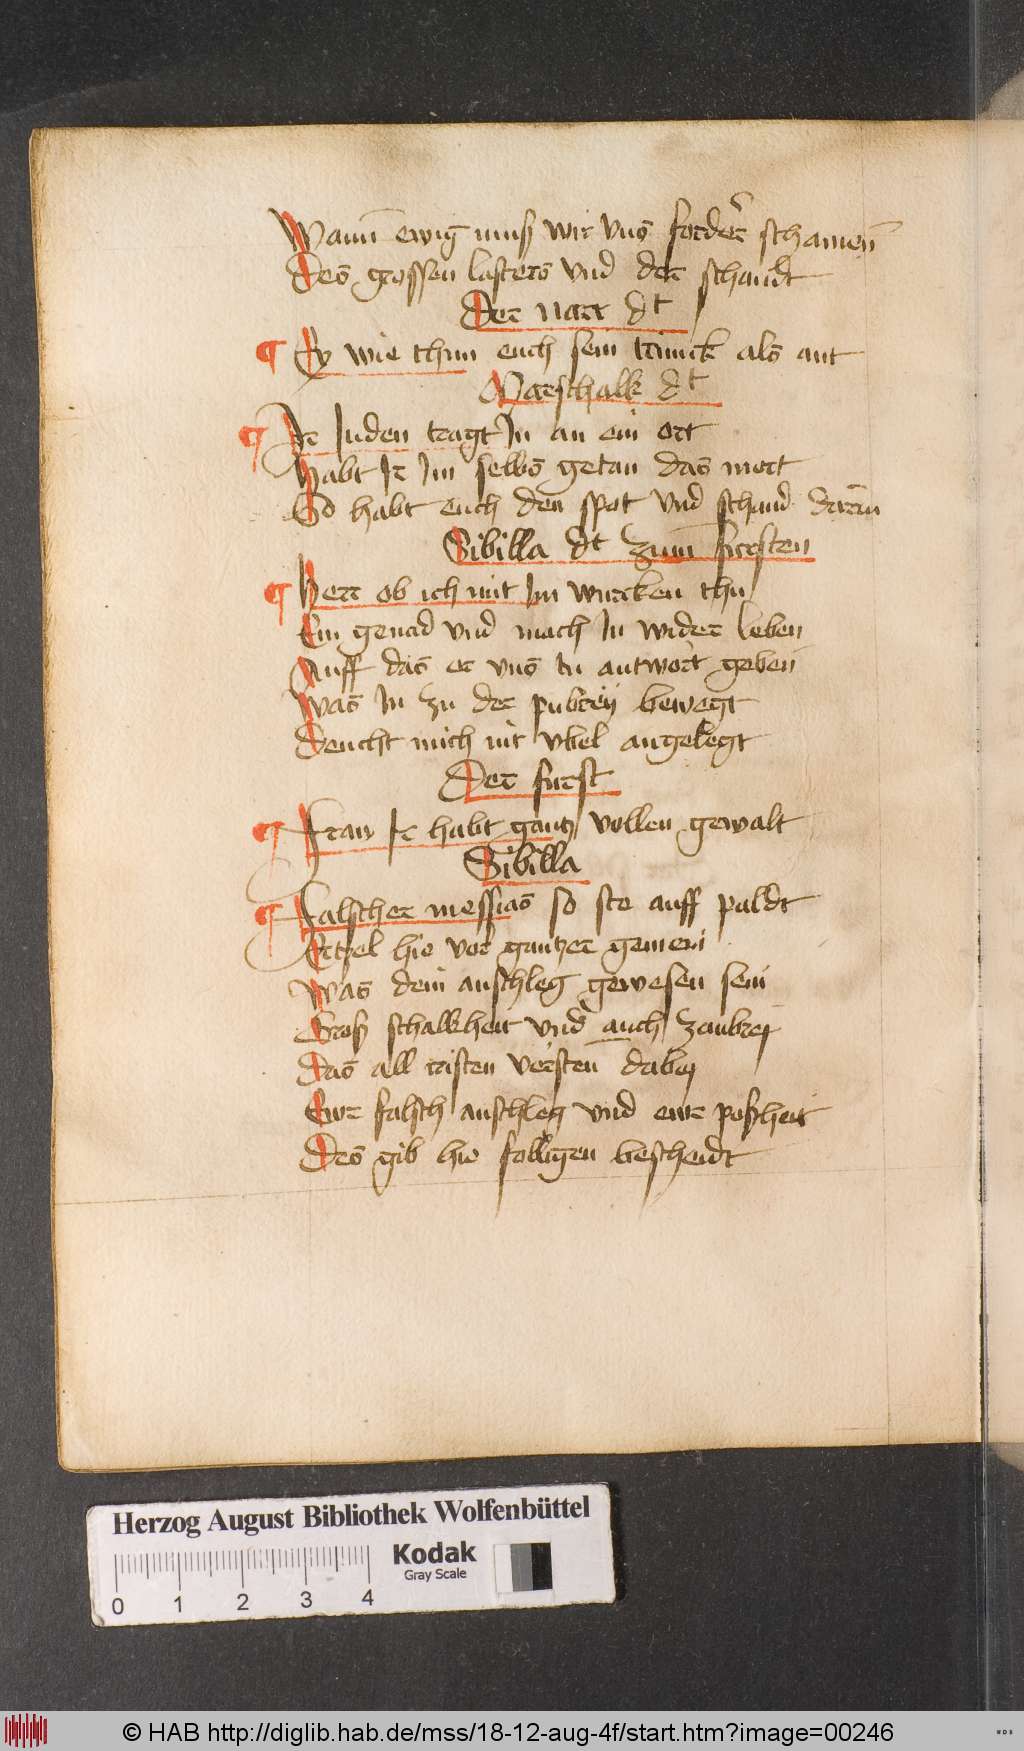 Wann ewig muß wir vns forder schamen
Des grossen lasters vnd der schandt
Der narr dt
¶ Ey wie thun euch sein trunck als ant
Marschalk dt
¶ Ir Juden tragt In an ein ort
Habt Ir Im selbs getan das mort
So habt euch den spot vnd schand darum
Sibilla dt zum fursten
¶ Herr ob ich mit Im wurcken thu
Ein genad vnd mach In wider leben
Auff das er vns tu antwort geben
Was In zu der pubrey bewegt
Deucht mich nit vbel angelegt
Der furst
¶ Fraw Ir habt gantz vollen gewalt
Sibilla
¶ Falscher messias so ste auff paldt
Ertzel hie vor gantzer gemein
Was dein anschleg gewesen sein
Groß schalkheit vnd auch zaubrey
Das all cristen versten dabey
Ewr falsch anschleg vnd ewr poßheit
Des gib hie selligen bescheidt
Herzog August Bibliothek Wolfenbüttel
Kodak
Gray Scale
0 1 2 3 4
© HAB http://diglib.hab.de/mss/18-12-aug-4f/start.htm?image=00246